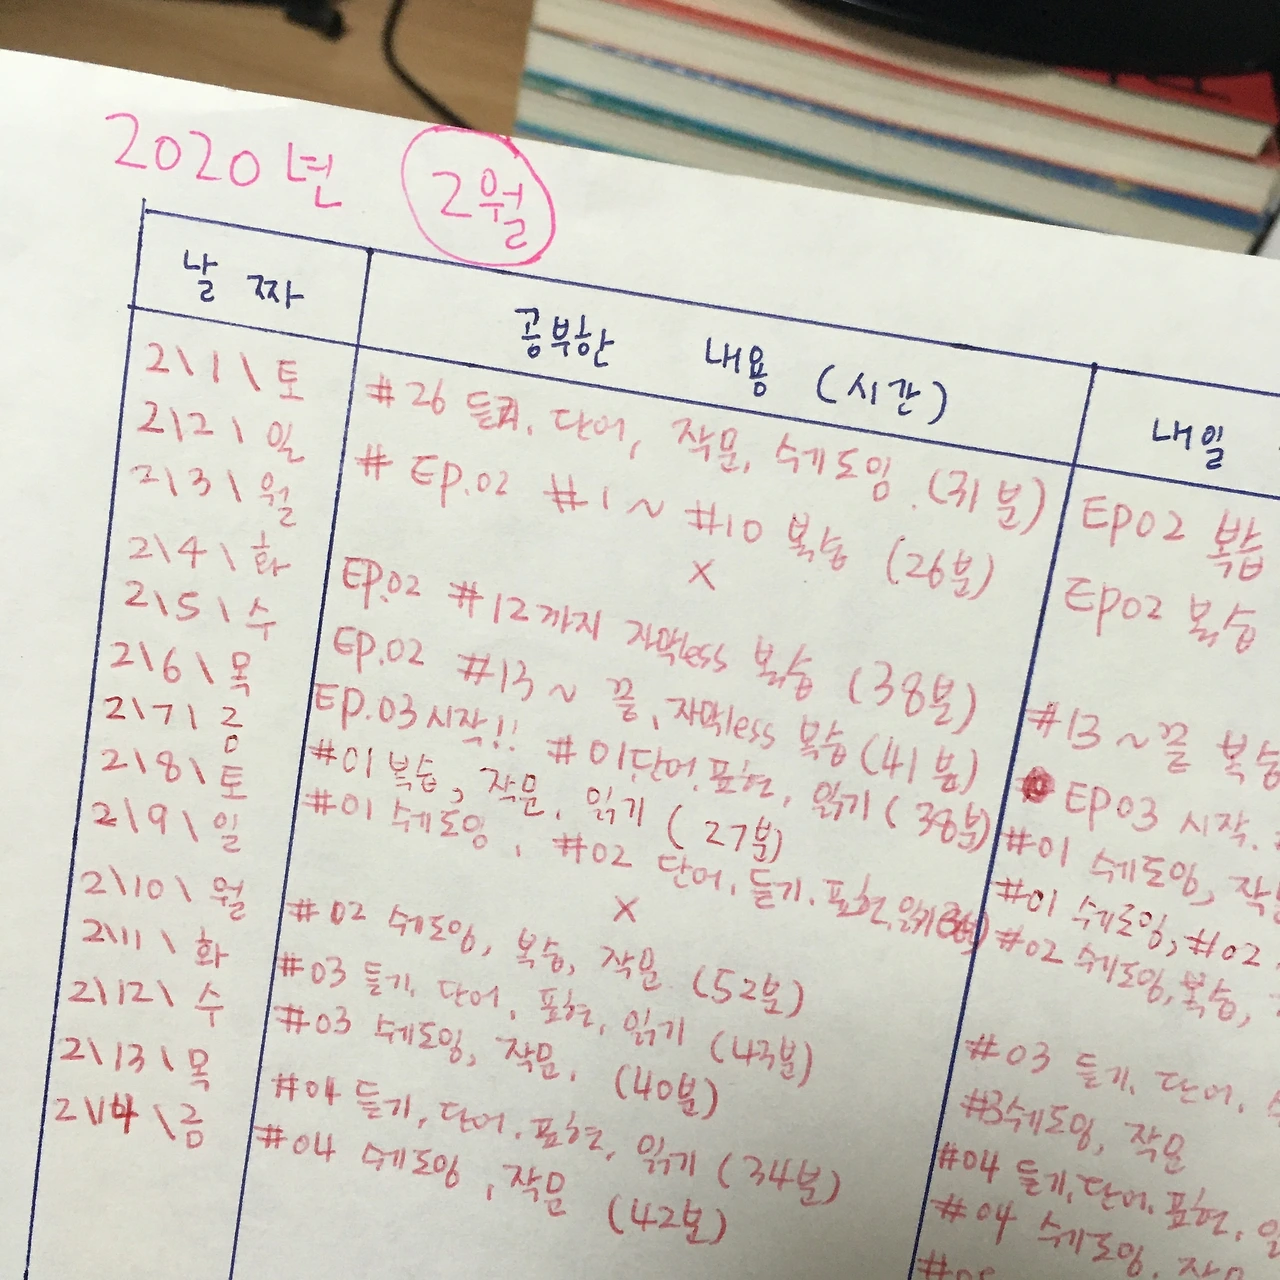 2020년 2월
날 짜 공부한 내용 (시간) 내일
2\1\토 #26 듣기, 단어, 작문, 쉐도잉. (31분) EP02 복습
2\2\일 # EP.02 #1~#10 복습 (26분) EP02 복습
2\3\월 X
2\4\화 EP.02 #12까지 자막less 복습 (38분) #13~끝 복습
2\5\수 EP.02 #13~ 끝, 자막less 복습 (41분) EP03 시작.
2\6\목 EP.03시작!! #01단어, 표현, 읽기 (38분) #01 쉐도잉,
2\7\금 #01복습, 작문, 읽기 (27분) #01 쉐도잉, #02
2\8\토 #01 쉐도잉, #02 단어, 듣기, 표현, 읽기 #02 쉐도잉, 복습,
2\9\일 X
2\10\월 #02 쉐도잉, 복습, 작문 (52분) #03 듣기, 단어,
2\11\화 #03 듣기, 단어, 표현, 읽기 (43분) #3쉐도잉, 작문
2\12\수 #03 쉐도잉, 작문, (40분) #04 듣기, 단어, 표현,
2\13\목 #04 듣기, 단어, 표현, 읽기 (34분) #04 쉐도잉, 작문
2\14\금 #04 쉐도잉, 작문 (42분)